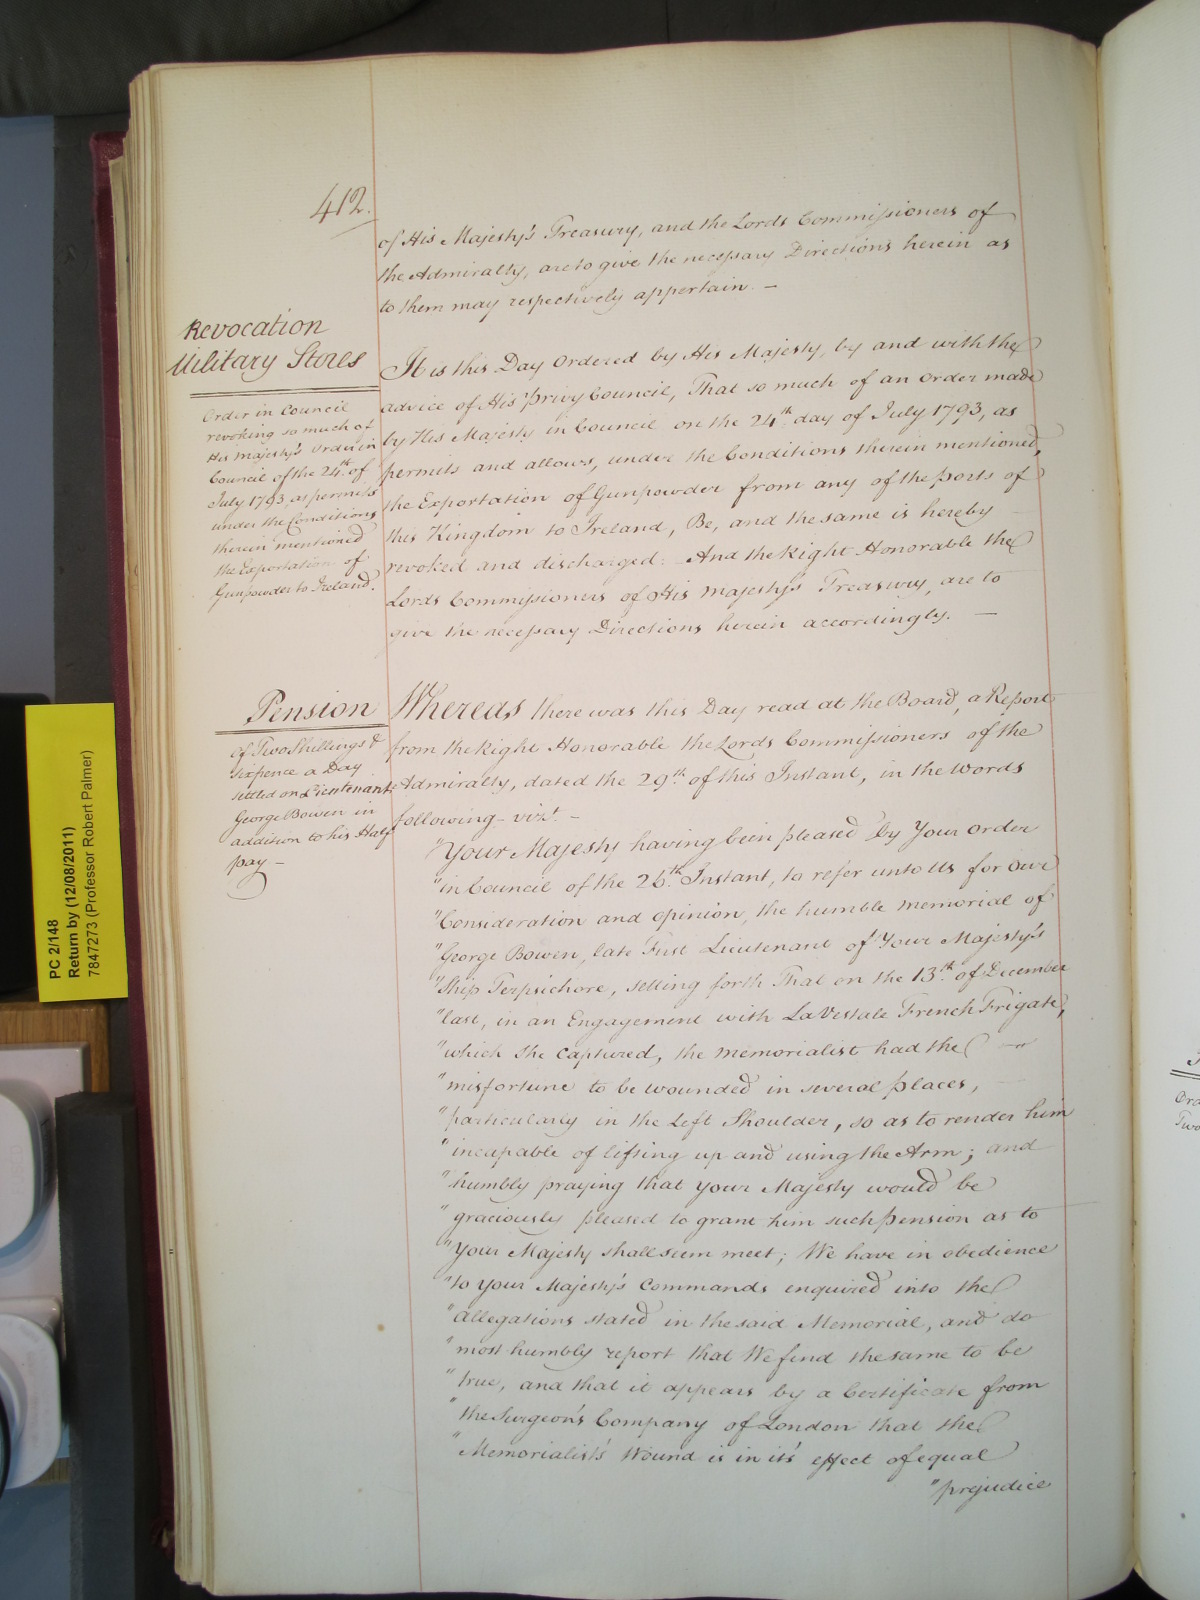 412.
of His Majesty's Treasury, and the Lords Commissioners of
the Admiralty, are to give the necessary Directions herein as
to them may respectively appertain. —
Revocation
Military Stores
Order in Council
revoking so much of
His Majesty's Order in
Council of the 24th of
July 1793, as permits
under the Conditions
therein mentioned
the Exportation of
Gunpowder to Ireland.
It is this Day Ordered by His Majesty, by and with the
advice of His Privy Council, That so much of an Order made
by His Majesty in Council on the 24th day of July 1793, as
permits and allows, under the Conditions therein mentioned,
the Exportation of Gunpowder from any of the ports of
this Kingdom to Ireland, Be, and the same is hereby
revoked and discharged: And the Right Honorable the
Lords Commissioners of His Majesty's Treasury, are to
give the necessary Directions herein accordingly. —
Pension
of Two Shillings &
Sixpence a Day
settled on Lieutenant
George Bowen in
addition to his Half
pay —
Whereas there was this Day read at the Board, a Report
from the Right Honorable the Lords Commissioners of the
Admiralty, dated the 29th of this Instant, in the Words
following - vizt. -
"Your Majesty having been pleased by Your Order
"in Council of the 26th Instant, to refer unto Us for Our
"Consideration and opinion, the humble memorial of
"George Bowen, late First Lieutenant of Your Majesty's
"Ship Terpsichore, setting forth That on the 13th of December
"last, in an Engagement with La Vestale French Frigate,
"which She captured, the memorialist had the —
"misfortune to be wounded in several places,
"particularly in the Left Shoulder, so as to render him
"incapable of lifting up and using the Arm; and
"humbly praying that your Majesty would be
"graciously pleased to grant him such pension as to
"Your Majesty shall seem meet; We have in obedience
"to Your Majesty's Commands enquired into the
"Allegations stated in the said Memorial, and do
"most humbly report that We find the same to be
"true, and that it appears by a Certificate from
"the Surgeon's Company of London that the
"Memorialist's Wound is in it's effect of equal
"prejudice
PC 2/148
Return by (12/08/2011)
7847273 (Professor Robert Palmer)
Ord
Two